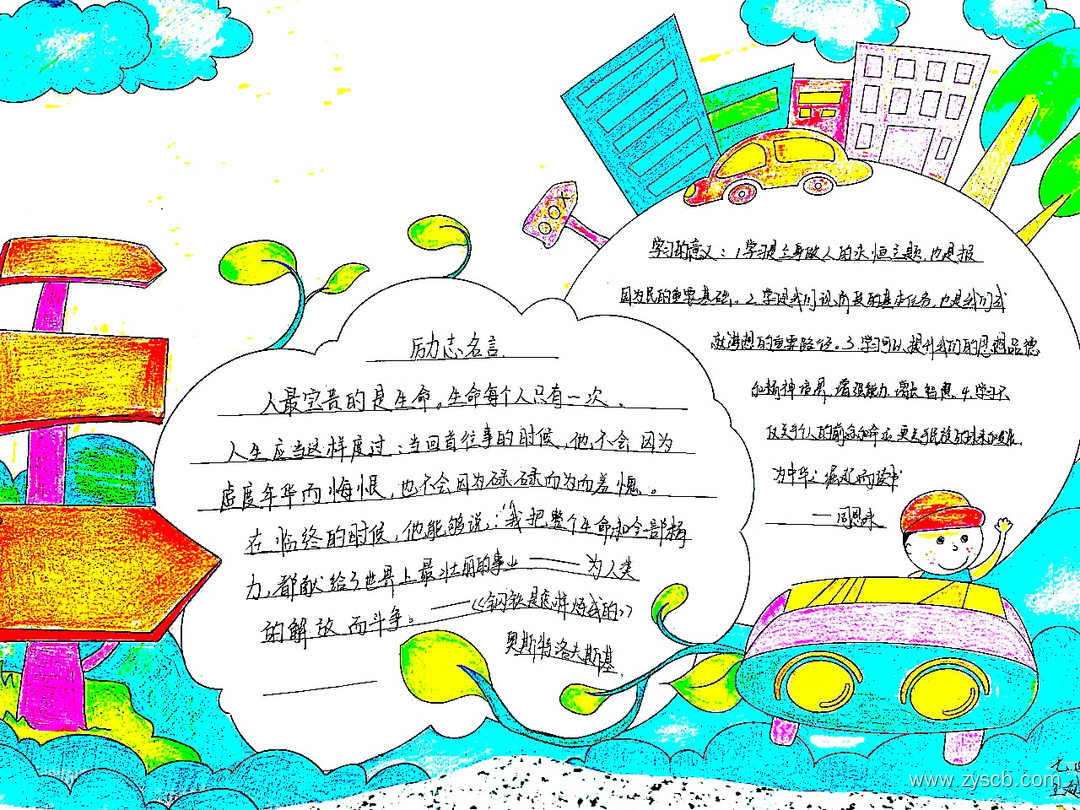 励志名言
人最宝贵的是生命。生命每个人只有一次、
人生应当这样度过：当回首往事的时候，他不会因为
虚度年华而悔恨，也不会因为碌碌而为而羞愧。
在临终的时候，他能够说："我把整个生命和全部精
力，都献给了世界上最壮丽的事业——为人类
的解放而斗争。——《钢铁是怎样炼成的》
奥斯特洛夫斯基
学习的意义：1学习是立身做人的永恒主题，也是报
国为民的重要基础。2.学习是我们现阶段的基本任务，也是我们成
就梦想的重要路径。3.学习可以提升我们的思想品德
和精神境界，增强能力，增长智慧。4.学习不
仅关乎个人的前途和命运，更关乎民族的未来和发展。
为中华之崛起而读书
——周恩来
www.zyscb.com